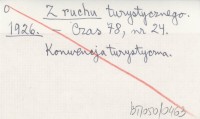 Z ruchu turystycznego.
1926. – Czas 78, nr 24.
Konwencja turystyczna.